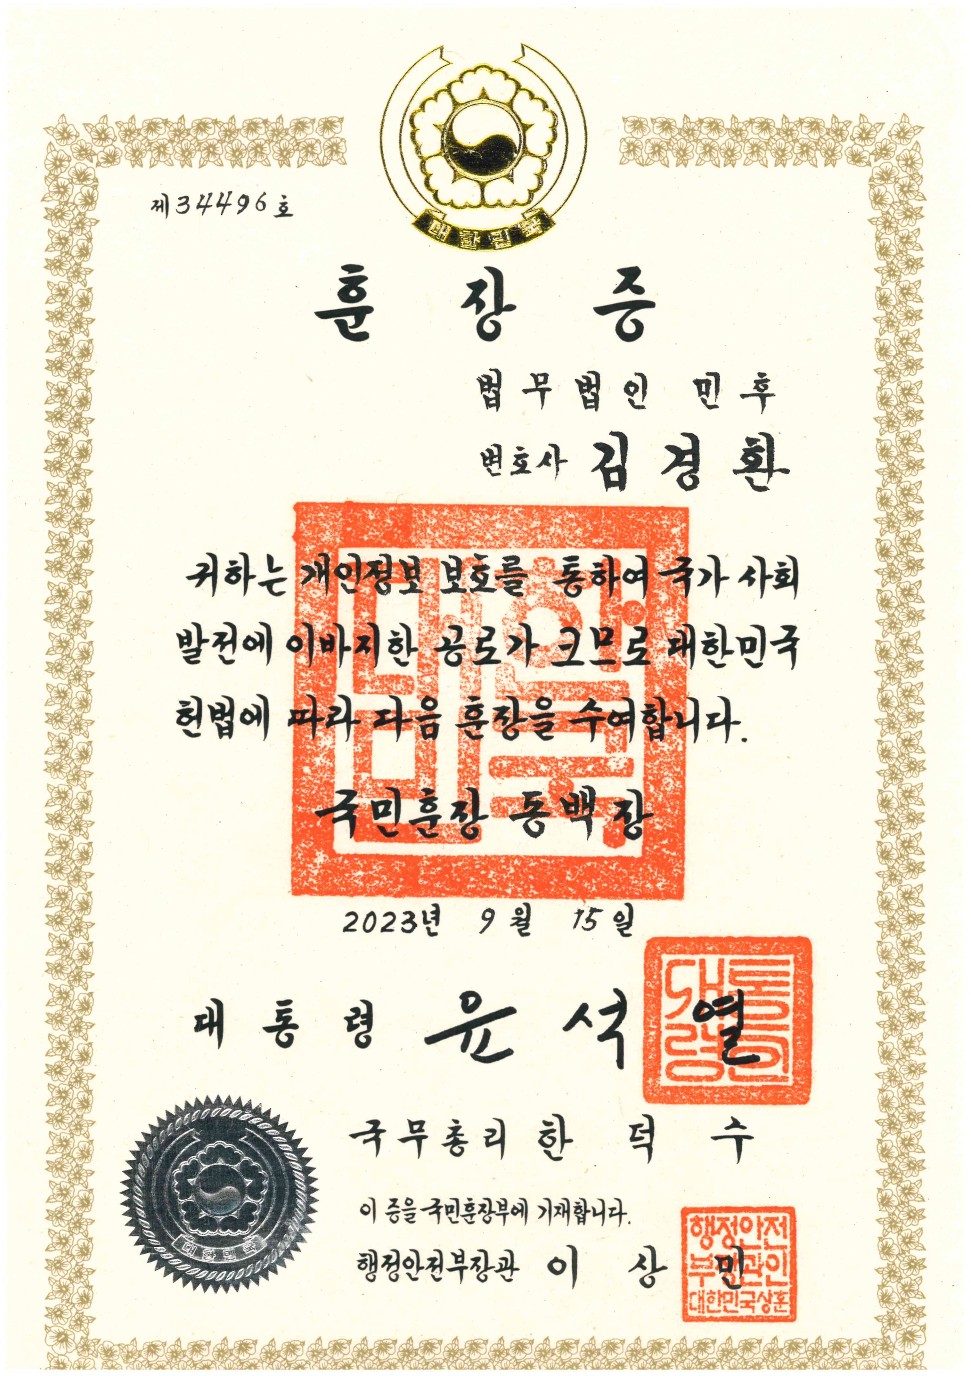 대한민국
제34496호
훈장증
법무법인 민후
변호사 김경환
귀하는 개인정보 보호를 통하여 국가 사회
발전에 이바지한 공로가 크므로 대한민국
헌법에 따라 다음 훈장을 수여합니다.
국민훈장 동백장
2023년 9월 15일
대통령 윤석열
국무총리 한덕수
이 증을 국민훈장부에 기재합니다.
행정안전부장관 이상민
대한민국
대한민국
대통령의인
행정안전
부장관인
대한민국상훈